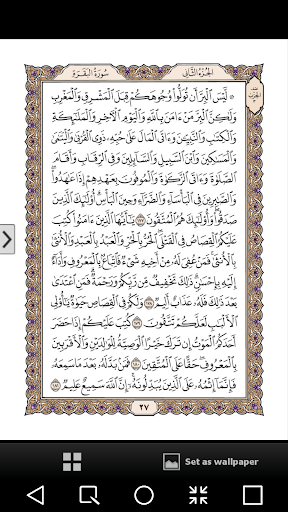 الجزء الثاني
سورة البقرة
۞ لَّيْسَ ٱلْبِرَّ أَن تُوَلُّوا۟ وُجُوهَكُمْ قِبَلَ ٱلْمَشْرِقِ وَٱلْمَغْرِبِ
وَلَٰكِنَّ ٱلْبِرَّ مَنْ ءَامَنَ بِٱللَّهِ وَٱلْيَوْمِ ٱلْءَاخِرِ وَٱلْمَلَٰٓئِكَةِ
وَٱلْكِتَٰبِ وَٱلنَّبِيِّۦنَ وَءَاتَى ٱلْمَالَ عَلَىٰ حُبِّهِۦ ذَوِى ٱلْقُرْبَىٰ وَٱلْيَتَٰمَىٰ
وَٱلْمَسَٰكِينَ وَٱبْنَ ٱلسَّبِيلِ وَٱلسَّآئِلِينَ وَفِى ٱلرِّقَابِ وَأَقَامَ
ٱلصَّلَوٰةَ وَءَاتَى ٱلزَّكَوٰةَ وَٱلْمُوفُونَ بِعَهْدِهِمْ إِذَا عَٰهَدُوا۟
وَٱلصَّٰبِرِينَ فِى ٱلْبَأْسَآءِ وَٱلضَّرَّآءِ وَحِينَ ٱلْبَأْسِ أُو۟لَٰٓئِكَ ٱلَّذِينَ
صَدَقُوا۟ وَأُو۟لَٰٓئِكَ هُمُ ٱلْمُتَّقُونَ ١٧٧ يَٰٓأَيُّهَا ٱلَّذِينَ ءَامَنُوا۟ كُتِبَ
عَلَيْكُمُ ٱلْقِصَاصُ فِى ٱلْقَتْلَى ٱلْحُرُّ بِٱلْحُرِّ وَٱلْعَبْدُ بِٱلْعَبْدِ وَٱلْأُنثَىٰ
بِٱلْأُنثَىٰ فَمَنْ عُفِىَ لَهُۥ مِنْ أَخِيهِ شَىْءٌ فَٱتِّبَاعٌۢ بِٱلْمَعْرُوفِ وَأَدَآءٌ
إِلَيْهِ بِإِحْسَٰنٍ ذَٰلِكَ تَخْفِيفٌ مِّن رَّبِّكُمْ وَرَحْمَةٌ فَمَنِ ٱعْتَدَىٰ
بَعْدَ ذَٰلِكَ فَلَهُۥ عَذَابٌ أَلِيمٌ ١٧٨ وَلَكُمْ فِى ٱلْقِصَاصِ حَيَوٰةٌ يَٰٓأُو۟لِى
ٱلْأَلْبَٰبِ لَعَلَّكُمْ تَتَّقُونَ ١٧٩ كُتِبَ عَلَيْكُمْ إِذَا حَضَرَ
أَحَدَكُمُ ٱلْمَوْتُ إِن تَرَكَ خَيْرًا ٱلْوَصِيَّةُ لِلْوَٰلِدَيْنِ وَٱلْأَقْرَبِينَ
بِٱلْمَعْرُوفِ حَقًّا عَلَى ٱلْمُتَّقِينَ ١٨٠ فَمَنۢ بَدَّلَهُۥ بَعْدَمَا سَمِعَهُۥ
فَإِنَّمَآ إِثْمُهُۥ عَلَى ٱلَّذِينَ يُبَدِّلُونَهُۥٓ إِنَّ ٱللَّهَ سَمِيعٌ عَلِيمٌ ١٨١
٢٧
Set as wallpaper